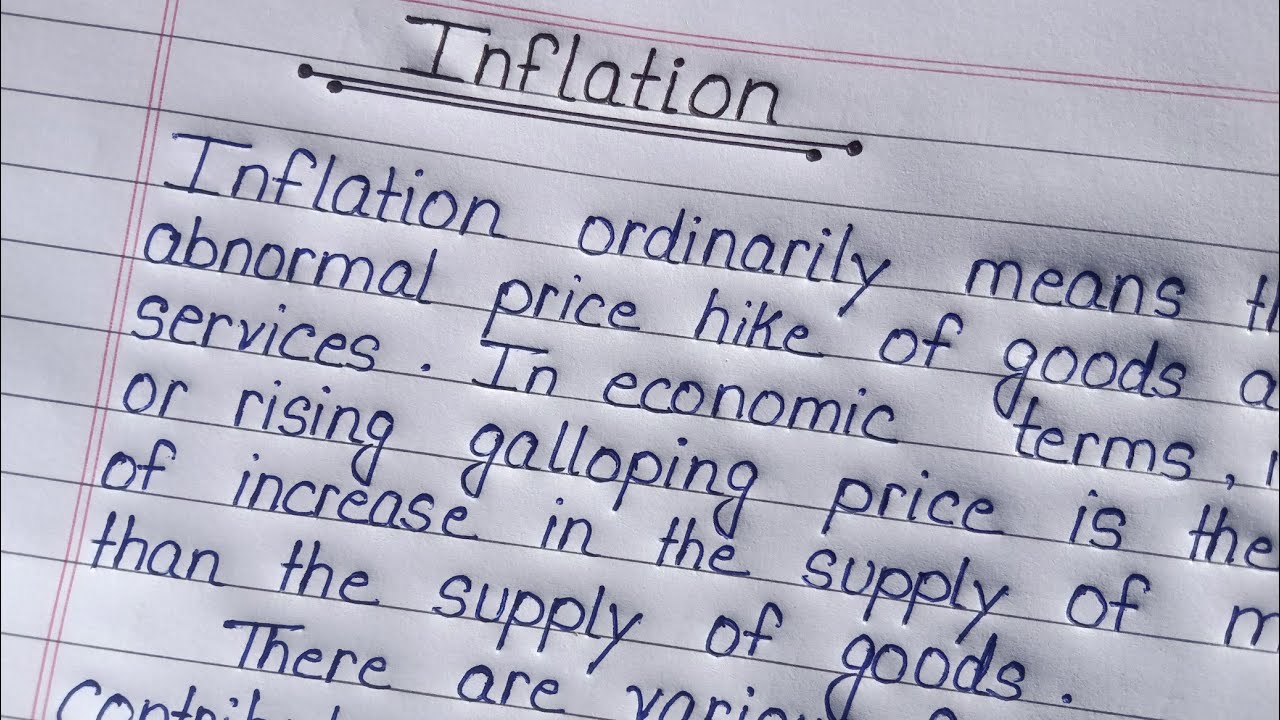 Inflation
Inflation ordinarily means
abnormal price hike of goods
services. In economic terms,
or rising galloping price is the
of increase in the supply of
than the supply of goods.
There are